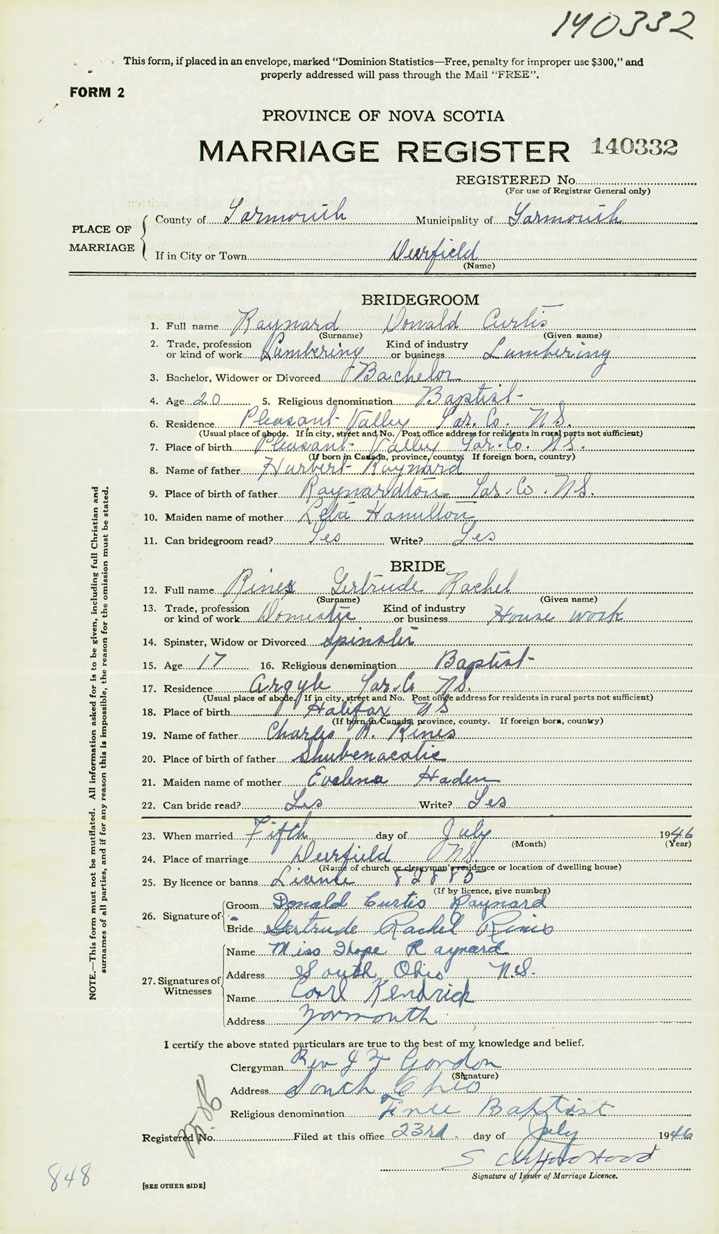 140332
This form, if placed in an envelope, marked "Dominion Statistics—Free, penalty for improper use $300," and
properly addressed will pass through the Mail "FREE".
FORM 2
PROVINCE OF NOVA SCOTIA
MARRIAGE REGISTER 140332
REGISTERED No.
(For use of Registrar General only)
PLACE OF MARRIAGE
County of Yarmouth Municipality of Yarmouth
If in City or Town Deerfield
(Name)
BRIDEGROOM
1. Full name Raynard Donald Curtis
(Surname) (Given name)
2. Trade, profession or kind of work Lumbering Kind of industry or business Lumbering
3. Bachelor, Widower or Divorced Bachelor
4. Age 20 5. Religious denomination Baptist
6. Residence Pleasant Valley Yar. Co. N.S.
(Usual place of abode. If in city, street and No. Post office address for residents in rural parts not sufficient)
7. Place of birth Pleasant Valley Yar. Co. N.S.
(If born in Canada, province, county. If foreign born, country)
8. Name of father Harbert Raynard
9. Place of birth of father Raynardton Yar. Co. N.S.
10. Maiden name of mother Leta Hamilton
11. Can bridegroom read? Yes Write? Yes
BRIDE
12. Full name Rines Gertrude Rachel
(Surname) (Given name)
13. Trade, profession or kind of work Domestic Kind of industry or business House work
14. Spinster, Widow or Divorced Spinster
15. Age 17 16. Religious denomination Baptist
17. Residence Argyle Yar. Co N.S.
(Usual place of abode. If in city, street and No. Post office address for residents in rural parts not sufficient)
18. Place of birth Halifax NS
(If born in Canada, province, county. If foreign born, country)
19. Name of father Charles Rines
20. Place of birth of father Shubenacatie
21. Maiden name of mother Evelena Haden
22. Can bride read? Yes Write? Yes
23. When married Fifth day of July 1946
(Month) (Year)
24. Place of marriage Deerfield N.S.
(Name of church or clergyman's residence or location of dwelling house)
25. By licence or banns License 82885
(If by licence, give number)
26. Signature of
Groom Donald Curtis Raynard
Bride Gertrude Rachel Rines
27. Signatures of Witnesses
Name Miss Hope Raynard
Address South Ohio N.S.
Name Carl Kendrick
Address Yarmouth
I certify the above stated particulars are true to the best of my knowledge and belief.
Clergyman Rev J Gordon
(Signature)
Address South Ohio
Religious denomination Baptist
Registered No. Filed at this office 23rd day of July 1946
S Clifford Hood
Signature of Issuer of Marriage Licence.
848
[SEE OTHER SIDE]
NOTE.—This form must not be mutilated. All information asked for is to be given, including full Christian and
surnames of all parties, and if for any reason this is impossible, the reason for the omission must be stated.